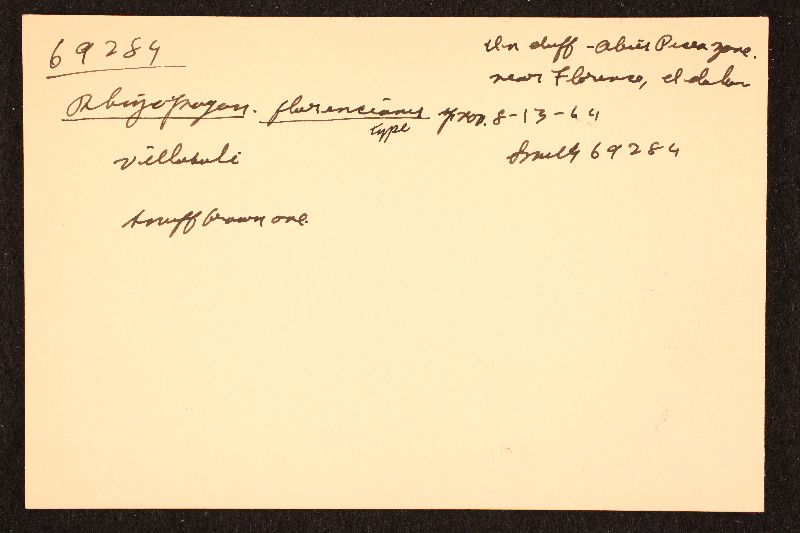 69284
In duff - Abies Picea zone.
near Florence, Idaho
Rhizopogon florencianus type prov. 8-13-64
Villosuli
Smith 69284
snuff brown one.